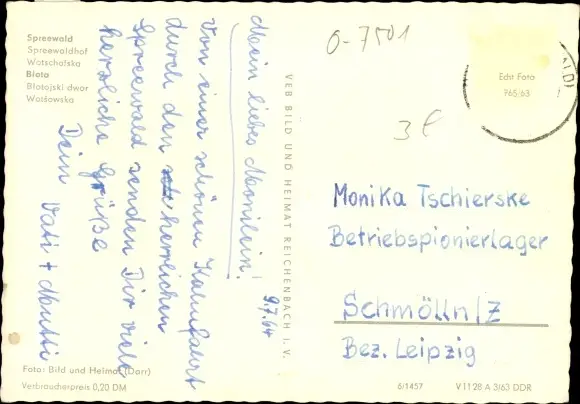 Spreewald
Spreewaldhof
Wotschofska
Błota
Błotojski dwor
Wótšowska
Mein liebes Monilein!
9.7.64
Von einer schönen Kahnfahrt
durch den herrlichen
Spreewald senden Dir viele
herzliche Grüße
Dein Vati + Mutti
Foto: Bild und Heimat (Darr)
Verbraucherpreis 0,20 DM
VEB BILD UND HEIMAT REICHENBACH I. V.
O-7501
3 €
Echt Foto
765/63
Monika Tschierske
Betriebspionierlager
Schmölln/Z
Bez. Leipzig
6/1457
V 11 28 A 3/63 DDR